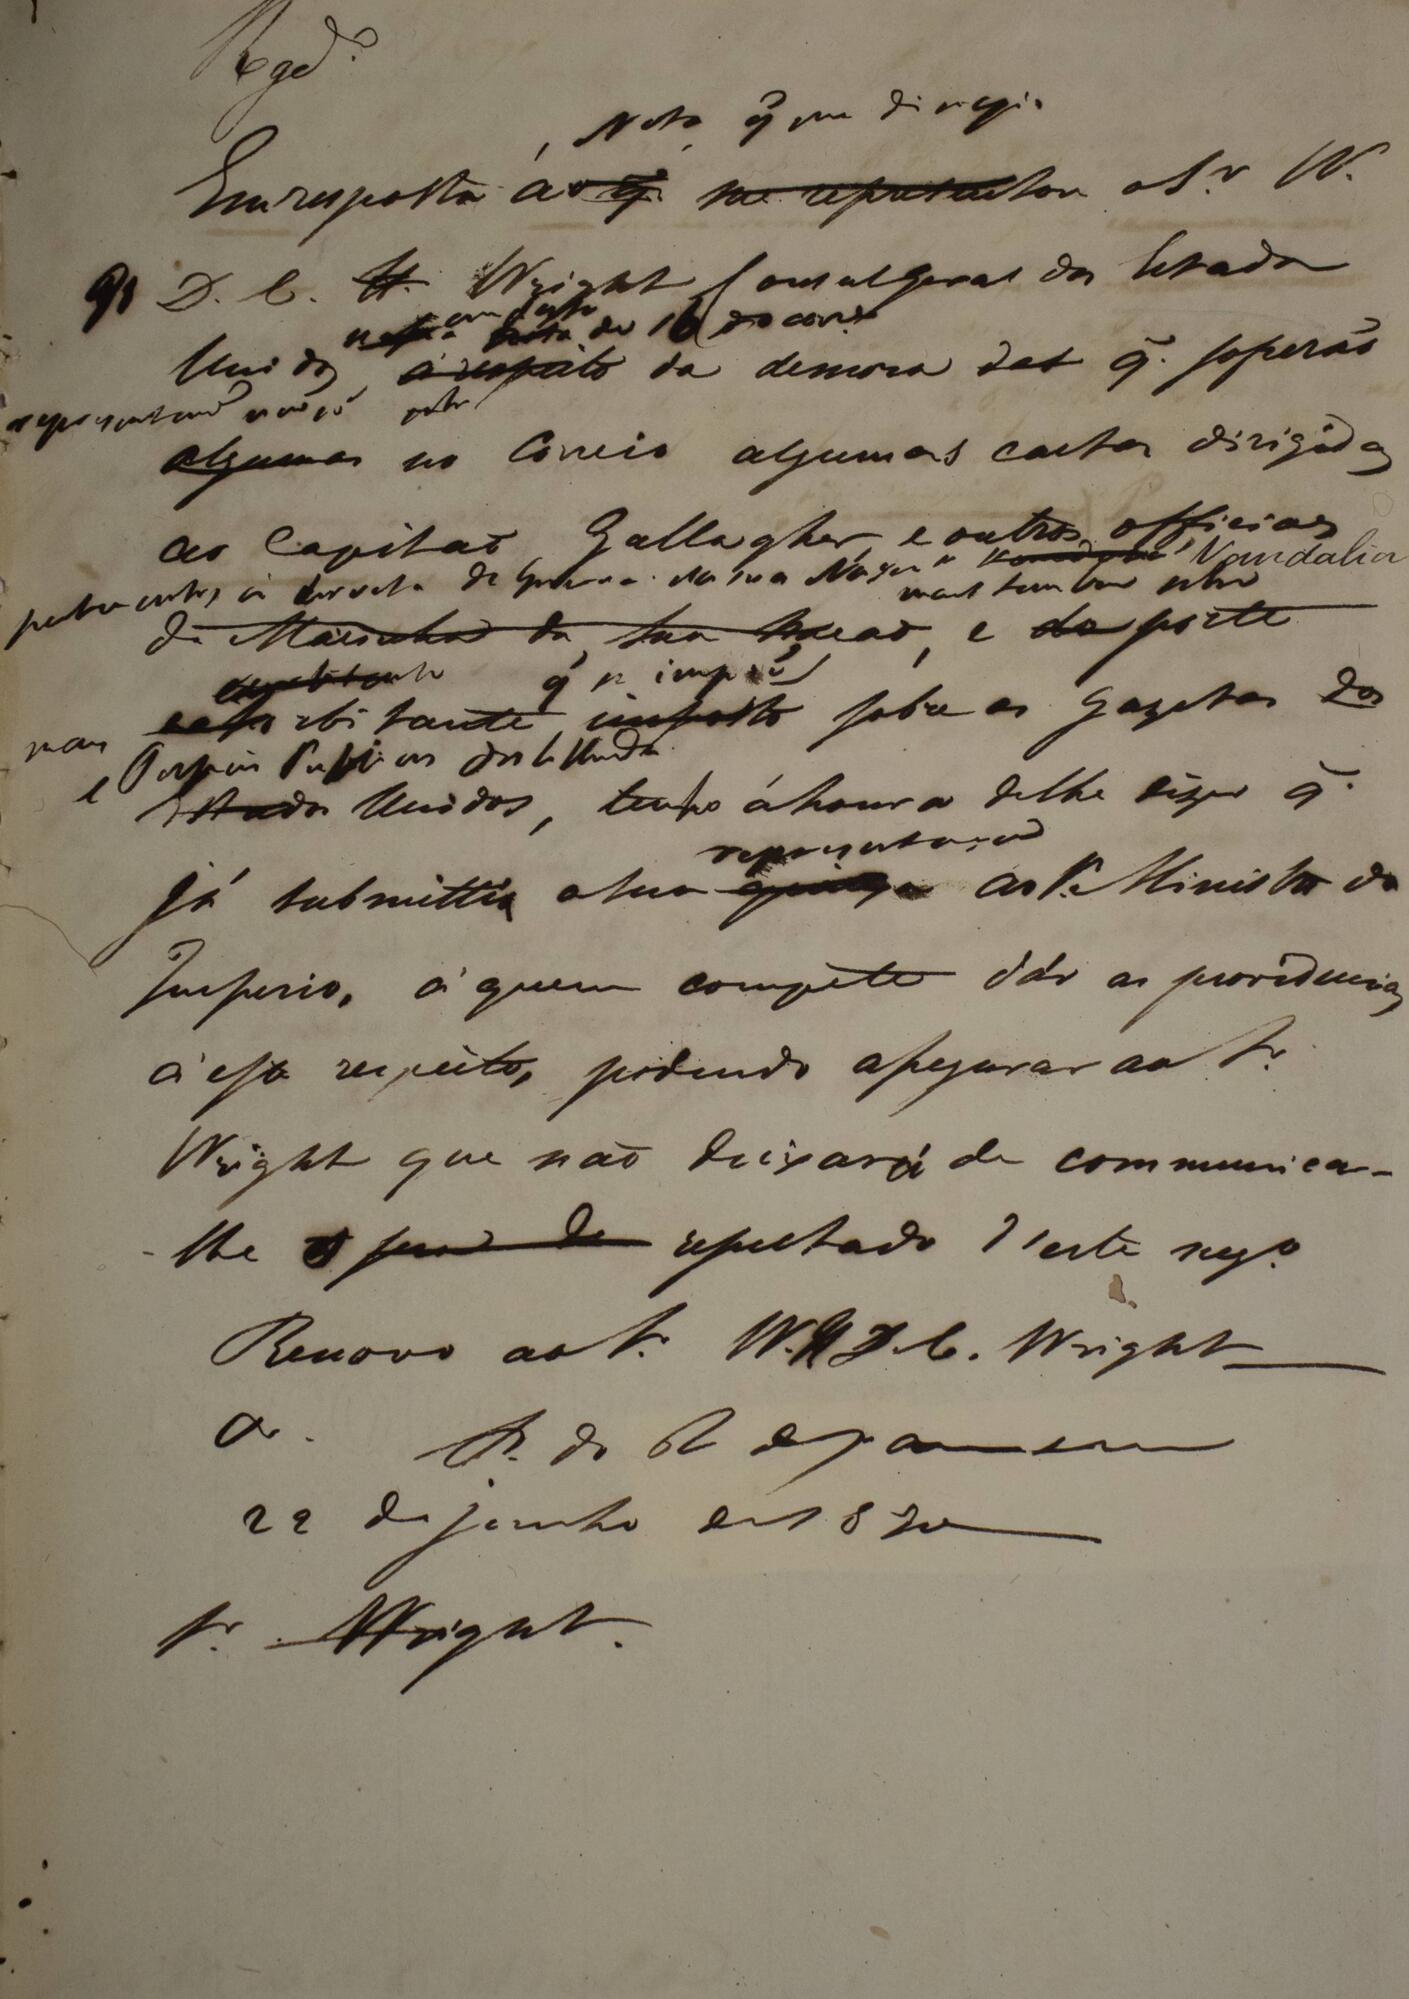 Regd.º
Nota q̃ me dirigio
Em resposta á ao q̃ me representou o Sr. W.
D. C. H. Wright Consul Geral dos Estados
em data de 16 do corre
Unidos, a respeito da demora det q̃. soperão
representando não só sobre
algumas no Correio algumas cartas dirigidas
ao Capitaõ Gallagher, e outros officiaes
pertencentes á Corveta de Guerra da sua Nação Vandalia
mas tambem sobre
da Marinha da sua Nacaõ, e do porte
q̃ se impoẽ
mais exorbitante imposto sobre as Gazetas dos
e Papeis Publicos dos E. Unidos
Estados Unidos, tenho á honra de lhe dizer q̃.
representaçaõ
já submetti a sua queixa ao Sr. Ministro do
Imperio, á quem compete dár as providencias
á esse respeito, podendo assegurar ao Sr.
Wright que naõ deixará de communicar-
-lhe o resultado d'este neg.º
Renovo ao Sr. W. H. D. C. Wright
&.
P. do R. de Janeiro
22 de junho de 1830
Sr. Wright.